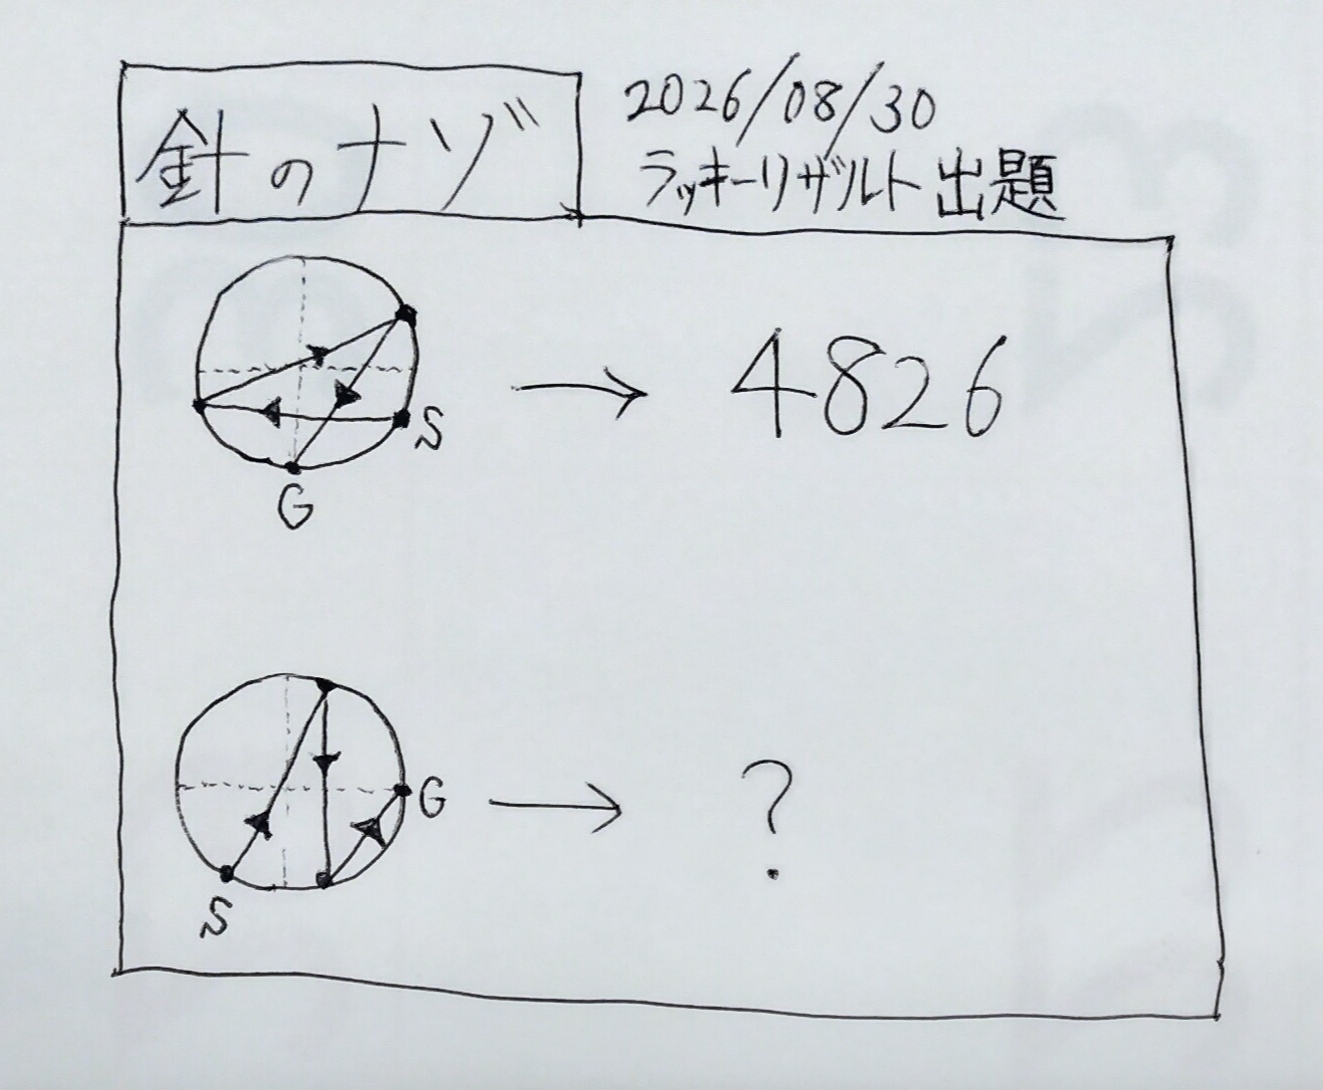 針のナゾ
2026/08/30
ラッキーリザルト出題
S
G
→ 4826
G
S
→ ?